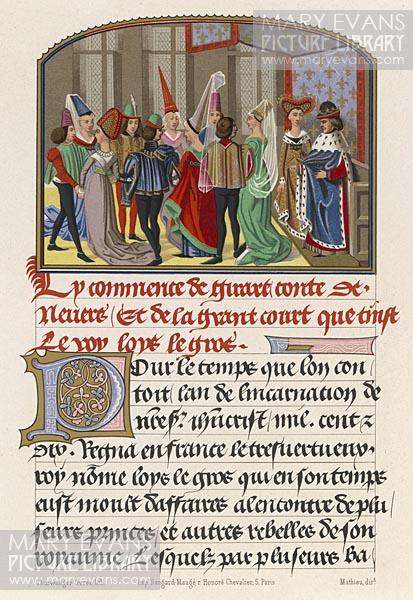 MARY EVANS
PICTURE LIBRARY
www.maryevans.com
Cy commence de girart conte de
Nevers / Et de la grant court que tinst
Le roy loys le gros
Pour le temps que lon con
toit / lan de lincarnation de
ihucrist / mil. cent z
dix . Regna en france le tresvertueux
roy nōme loys le gros qui en son temps
eust moult daffaires alencontre de plu
sieurs princes et autres rebelles de son
royaulme / lesquelz par plusieurs ba
MARY EVANS
PICTURE LIBRARY
www.maryevans.com
Hangard-Maugé r Honoré-Chevalier, 5, Paris.
Mathieu, dirt